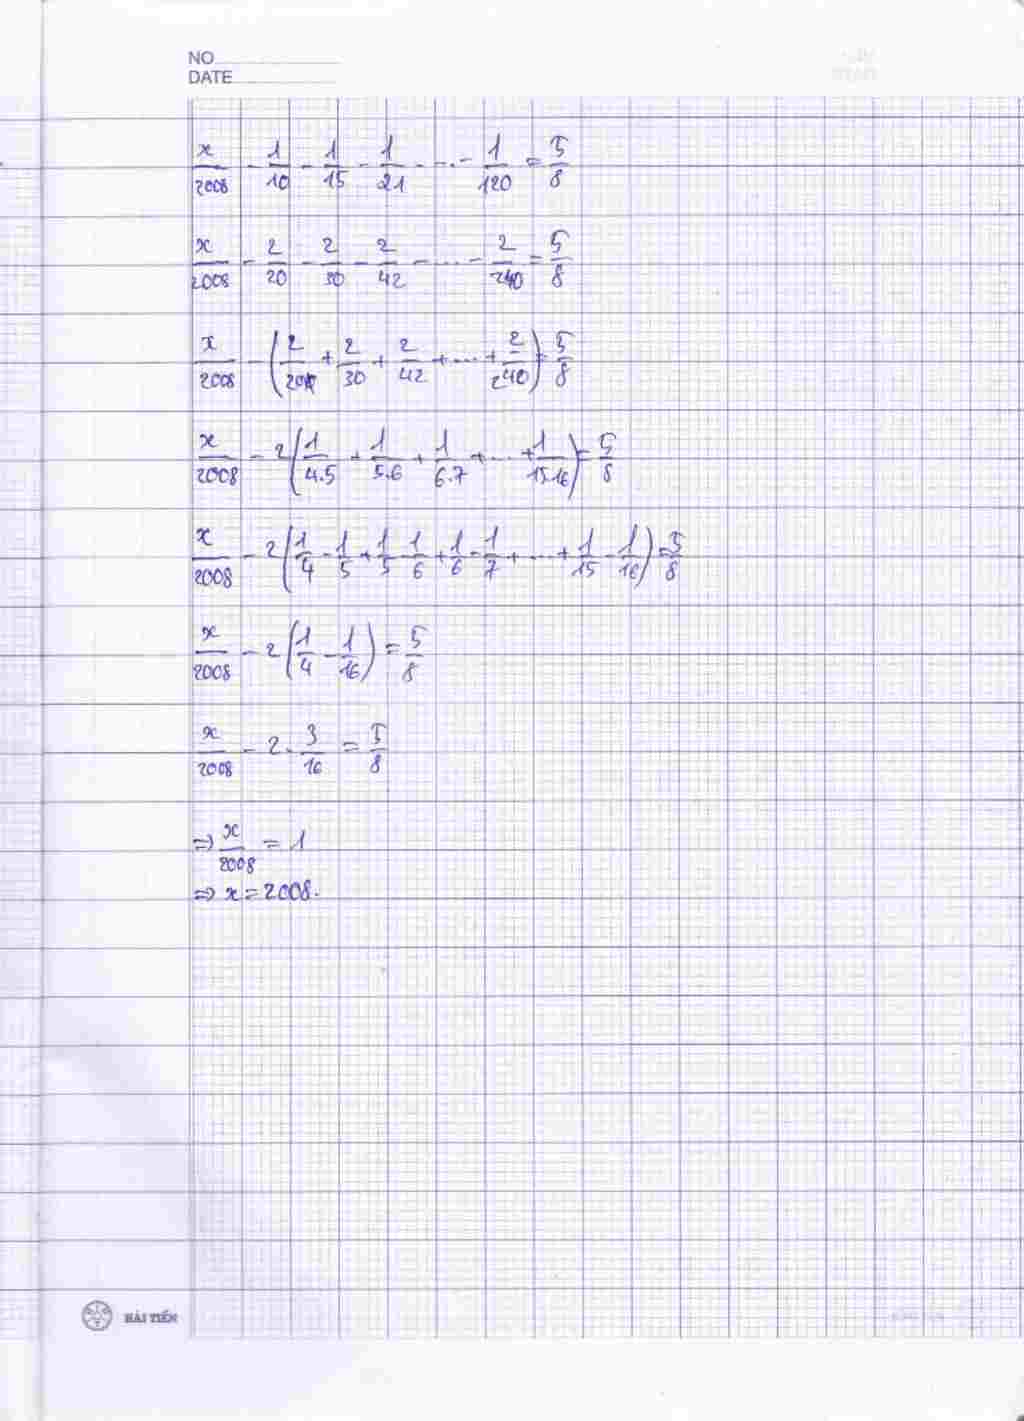 NO
DATE
x/2008 - 1/10 - 1/15 - 1/21 - ... - 1/120 = 5/8
x/2008 - 2/20 - 2/30 - 2/42 - ... - 2/240 = 5/8
x/2008 - (2/20 + 2/30 + 2/42 + ... + 2/240) = 5/8
x/2008 - 2(1/4.5 + 1/5.6 + 1/6.7 + ... + 1/15.16) = 5/8
x/2008 - 2(1/4 - 1/5 + 1/5 - 1/6 + 1/6 - 1/7 + ... + 1/15 - 1/16) = 5/8
x/2008 - 2(1/4 - 1/16) = 5/8
x/2008 - 2 . 3/16 = 5/8
⇒ x/2008 = 1
⇒ x = 2008.
HẢI TIẾN